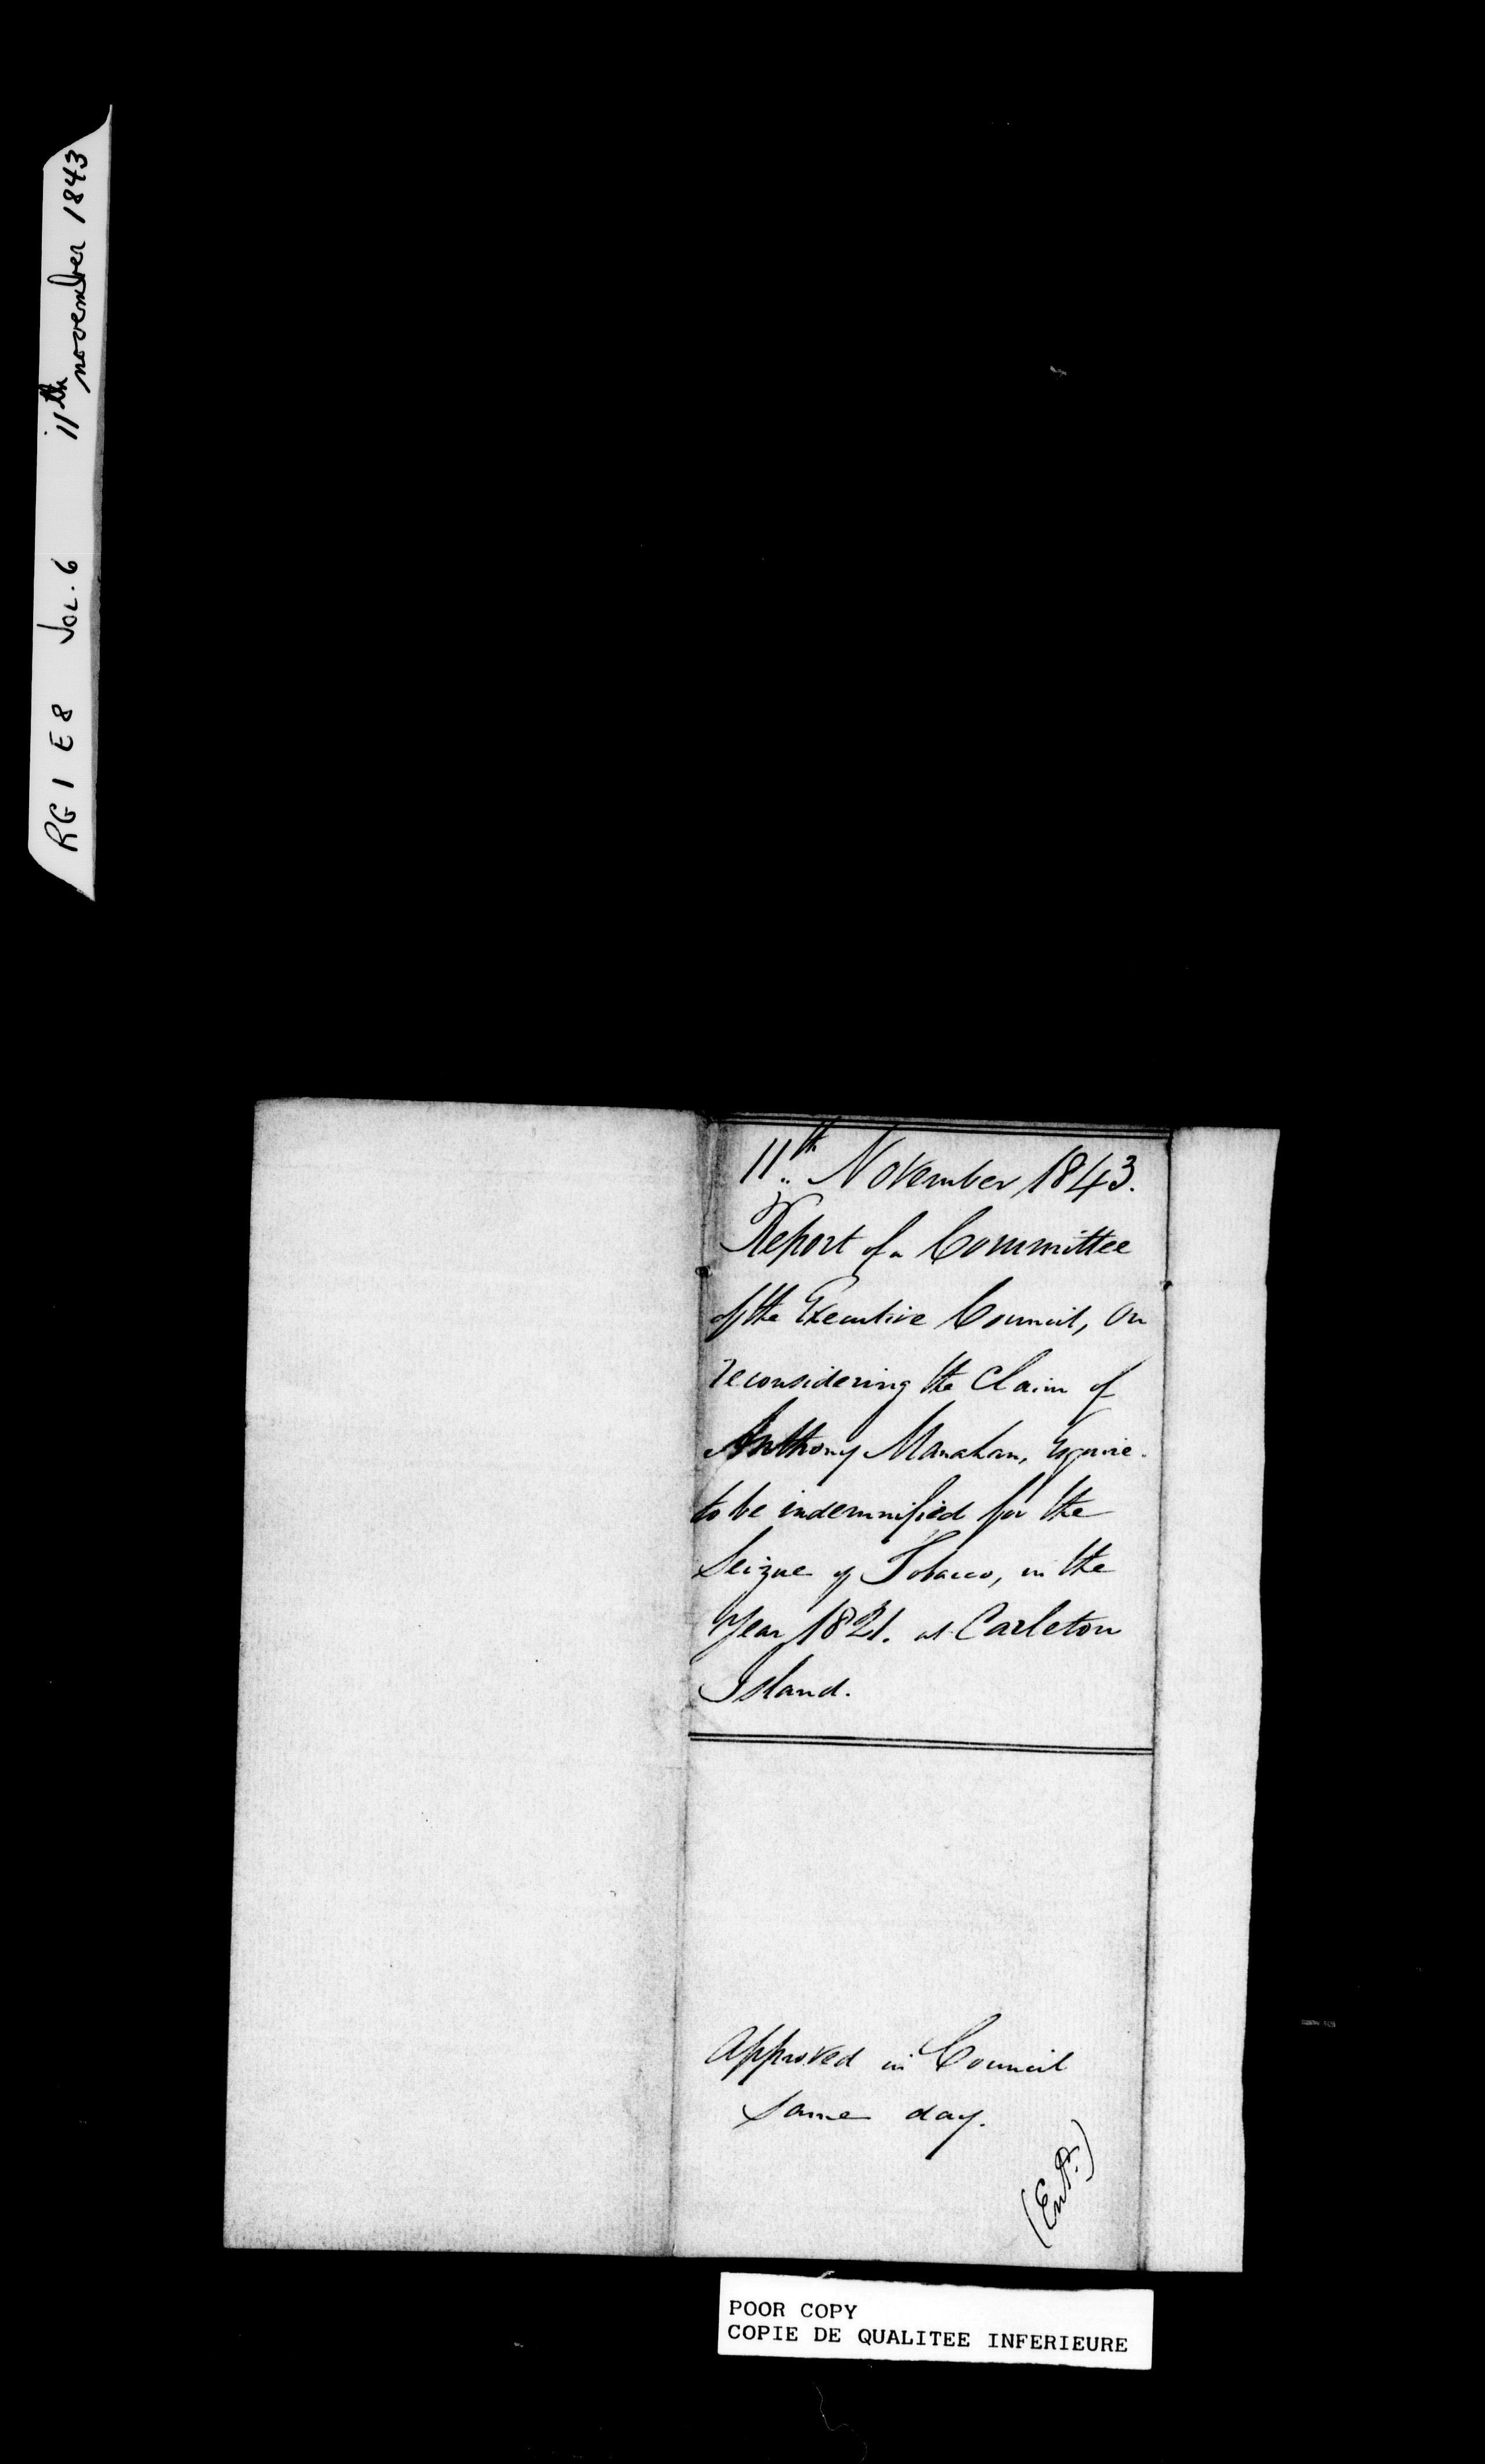 RG 1 E 8 Vol. 6 11th november 1843
11th November 1843.
Report of a Committee
of the Executive Council, On
reconsidering the Claim of
Anthony Manahan, Esquire.
to be indemnified for the
Seizure of Tobacco, in the
Year 1821. at Carleton
Island.
Approved in Council
Same day.
(Entd.)
POOR COPY
COPIE DE QUALITEE INFERIEURE